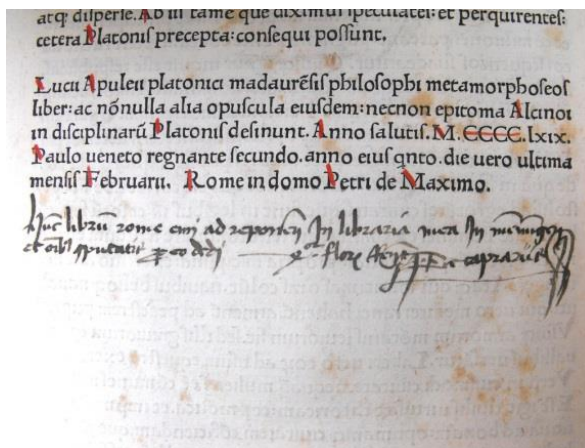 atq; disperse. Ad ill tame que diximus specutatei: et perquirentes:
cetera Platonis precepta: consequi possunt.
Lucii Apuleii platonici madaurēsis philosophi metamorphoseos
liber: ac nōnulla alia opuscula eiusdem: necnon epitoma Alcinoi
in disciplinarū Platonis desinunt. Anno salutis. M.CCCC.lxix.
Paulo ueneto regnante secundo. anno eius qnto. die uero ultima
mensis Februarii. Rome in domo Petri de Maximo.
librū rome emi ad in libraria mea In